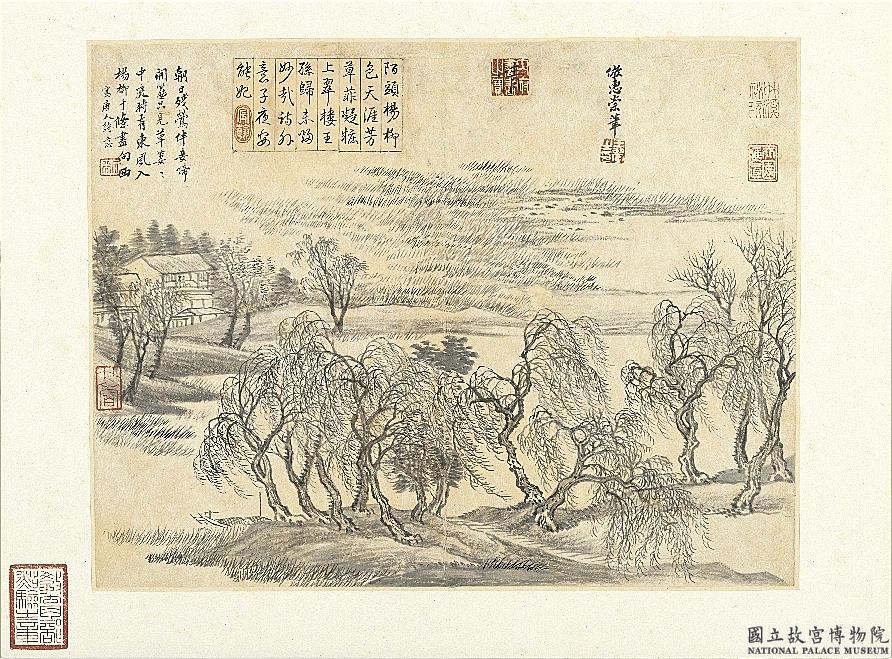 倣惠崇筆
陌頭楊柳
色天涯芳
草菲凝妝
上翠樓王
孫歸未
妙哉詩外
意子夜安
能妃
朝日殘鶯伴妾啼
開簾只見草萋〻
中庭時有東風入
楊柳千條盡向西
寫唐人詩意
國立故宮博物院
NATIONAL PALACE MUSEUM